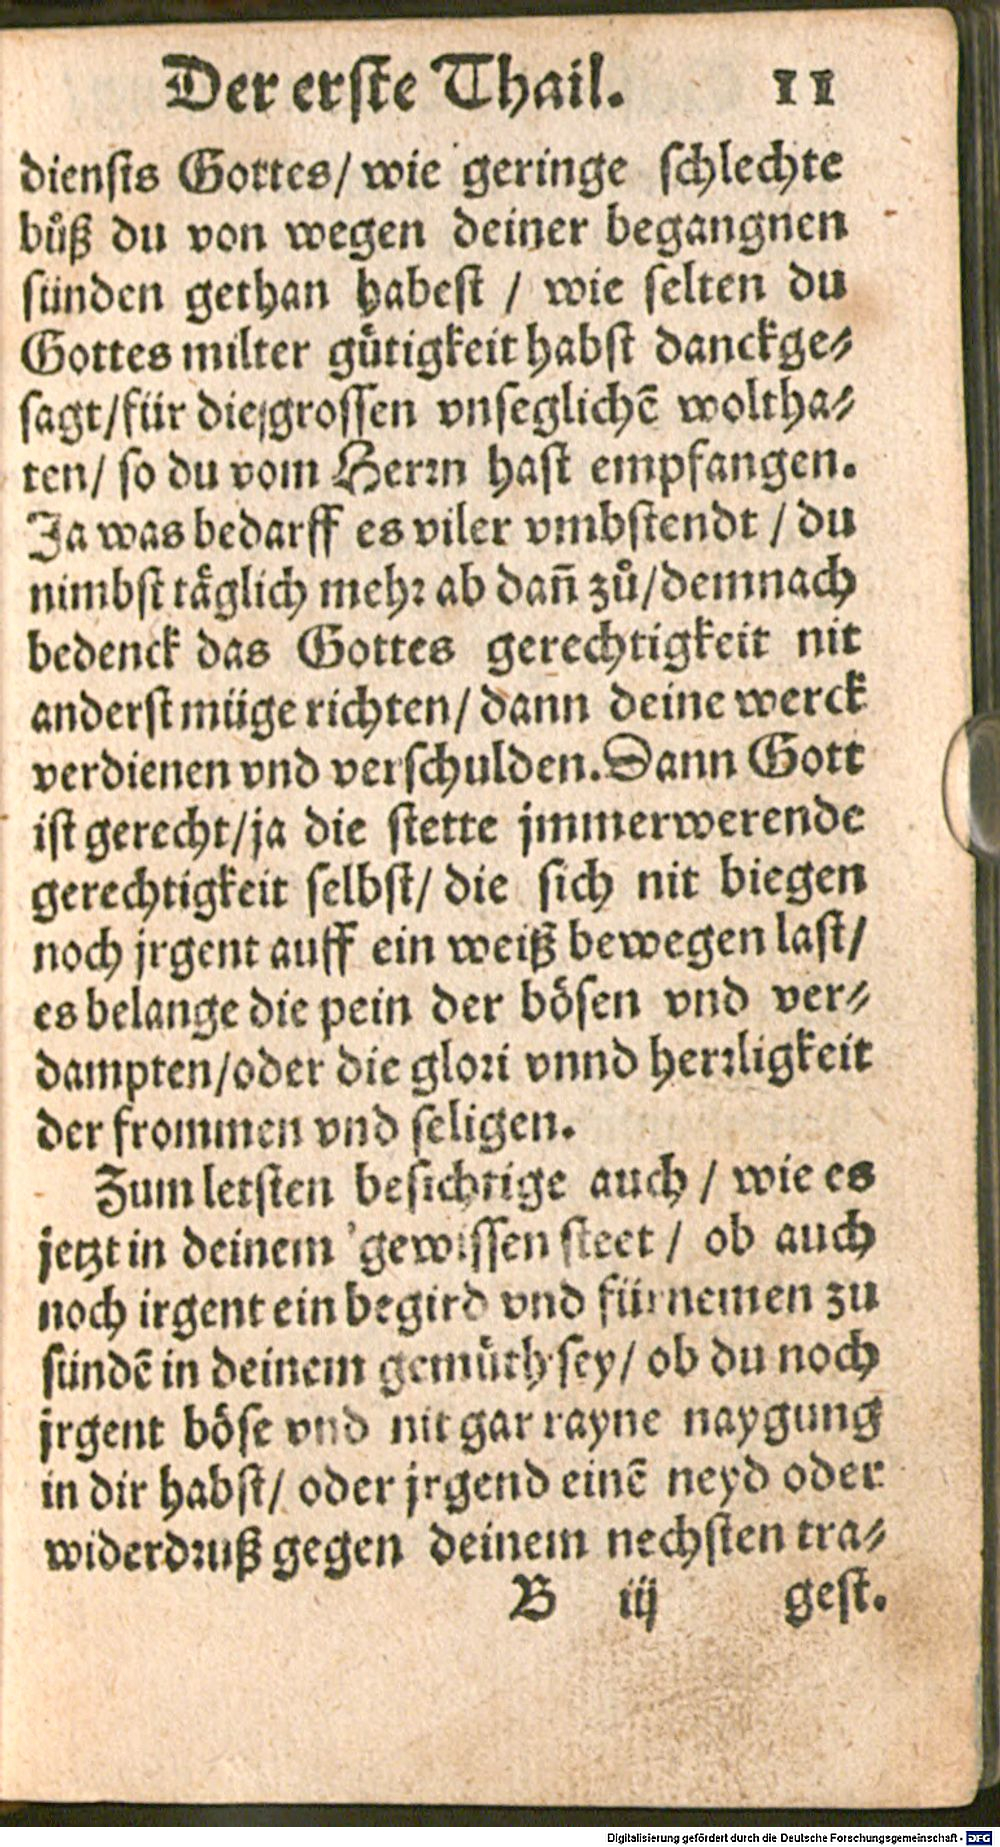 Der erste Thail. 11
diensts Gottes/ wie geringe schlechte
bůß du von wegen deiner begangnen
sünden gethan habest / wie selten du
Gottes milter gůtigkeit habst danckge⸗
sagt/für die grossen vnseglichē woltha⸗
ten/ so du vom Herrn hast empfangen.
Ja was bedarff es viler vmbstendt / du
nimbst täglich mehr ab dañ zů/demnach
bedenck das Gottes gerechtigkeit nit
anderst müge richten/ dann deine werck
verdienen vnd verschulden. Dann Gott
ist gerecht/ja die stette jmmerwerende
gerechtigkeit selbst/ die sich nit biegen
noch jrgent auff ein weiß bewegen last/
es belange die pein der bösen vnd ver⸗
dampten/oder die glori vnnd herrligkeit
der frommen vnd seligen.
Zum letsten besichtige auch / wie es
jetzt in deinem gewissen steet / ob auch
noch irgent ein begird vnd fürnemen zu
sündē in deinem gemüth sey/ ob du noch
jrgent böse vnd nit gar rayne naygung
in dir habst/ oder jrgend einē neyd oder
widerdruß gegen deinem nechsten tra⸗
B iij gest.
Digitalisierung gefördert durch die Deutsche Forschungsgemeinschaft - DFG